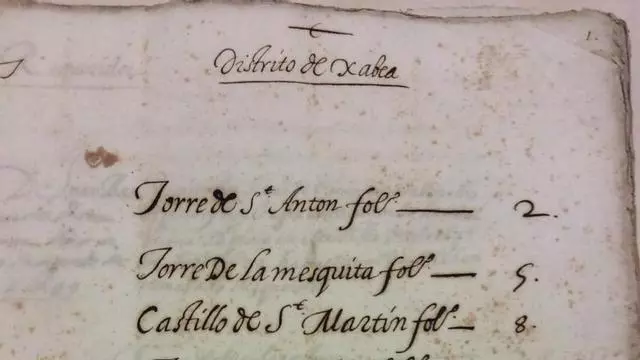 1.
Distrito de Xabea
Torre de S.t Anton fol.s — 2.
Torre De la mesquita fol.s — 5.
Castillo de S.t Martín fol.s — 8.